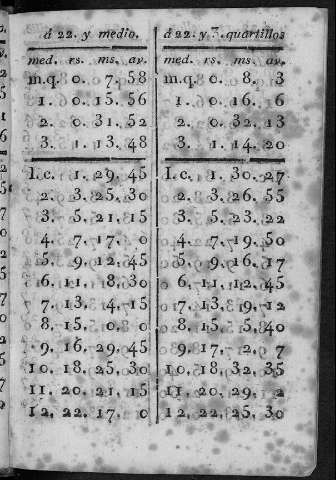 á 22. y medio. á 22. y 3. quartillos
med. rs. ms. av. med. rs. ms. av.
m.q. 0. 7. 58 m.q. 0. 8. 3
1. 0. 15. 56 1. 0. 16. 6
2. 0. 31. 52 2. 0. 32. 13
3. 1. 13. 48 3. 1. 14. 20
1.c. 1. 29. 45 1.c. 1. 30. 27
2. 3. 25. 30 2. 3. 26. 55
3. 5. 21. 15 3. 5. 23. 22
4. 7. 17. 0 4. 7. 19. 50
5. 9. 12. 45 5. 9. 16. 17
6. 11. 8. 30 6. 11. 12. 45
7. 13. 4. 15 7. 13. 9. 12
8. 15. 0. 0 8. 15. 5. 40
9. 16. 29. 45 9. 17. 2. 7
10. 18. 25. 30 10. 18. 32. 35
11. 20. 21. 15 11. 20. 29. 2
12. 22. 17. 0 12. 22. 25. 30